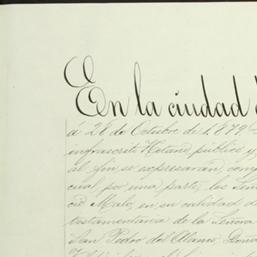 En la ciudad d
á 26 de Octubre de 1879
infrascrito Notario público y
al fin se espresaran, comp
cual por una parte, los Seño
cio Malo, en su calidad d
testamentaria de la Señora
San Pedro del Alamo, Seño